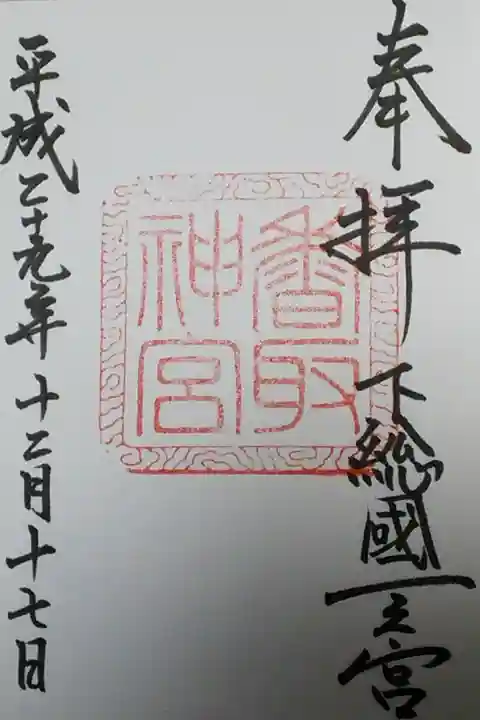 奉拝
下総國一之宮
香取
神宮
平成二十九年十二月十七日